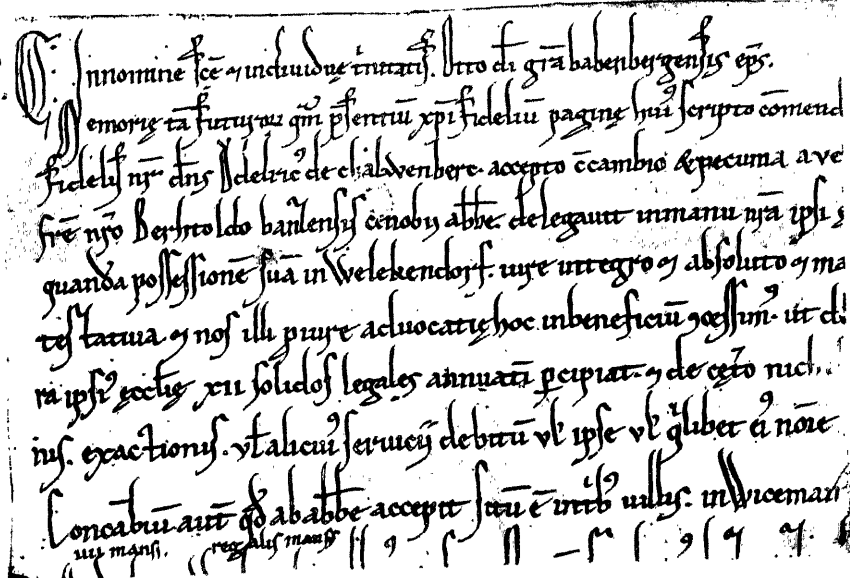 C. In nomine scē ⁊ individuę trinitatis. Otto dī grā babenbergensis eps̄.
Memorię tā futurorū qm̄ p̄sentiū xp̄i fideliū paginę hui⁹ scripto cōmend
fidelis nr̄ dn̄s Vdelric⁹ de chalwenberc. accepto ccambio & pecunia a ve
frē nrō Berhtoldo banzlensis cenobii abbē. delegavit in manū nrā ipsi
quandā possessionē suā in Welekendorf. iure integro ⁊ absoluto ⁊ ma
testativa. ⁊ nos illi p iure advocatię hoc in beneficiū ꝯcessim⁹. ut d
ra ipsi⁹ ęcclię xii solidos legales annuatī percipiat. ⁊ de cętō nich
ius. exactionis. vl alicui⁹ servicii debitū vl ipse vl qilibet ei⁹ nōie
Concabiū aut̄ qd ab abbē accepit sitū ē in trib⁹ villis. in Wiceman
iiii mansi. regalis mansus